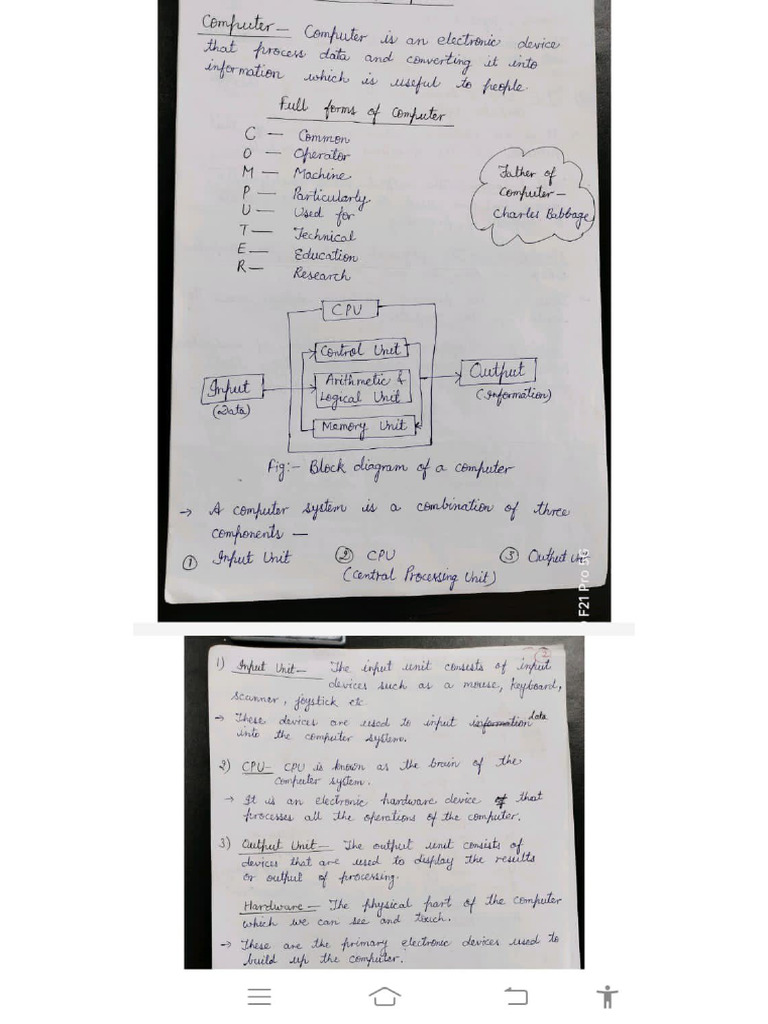 Computer — Computer is an electronic device
that process data and converting it into
information which is useful to people.
Full forms of Computer
C — Common
O — Operator
M — Machine
P — Particularly
U — Used for
T — Technical
E — Education
R — Research
Father of
Computer —
Charles Babbage
CPU
Control Unit
Input
(Data)
Arithmetic &
Logical Unit
Output
(Information)
Memory Unit
Fig:- Block diagram of a computer
→ A computer system is a combination of three
components —
① Input Unit ② CPU ③ Output Unit
(Central Processing Unit)
F21 Pro 5G
2
1) Input Unit — The input unit consists of input
devices such as a mouse, keyboard,
scanner, joystick etc
→ These devices are used to input information data
into the computer system.
2) CPU - CPU is known as the brain of the
computer system.
→ It is an electronic hardware device of that
processes all the operations of the computer.
3) Output Unit — The output unit consists of
devices that are used to display the results
or output of processing.
Hardware — The physical part of the computer
which we can see and touch.
→ These are the primary electronic devices used to
build up the computer.